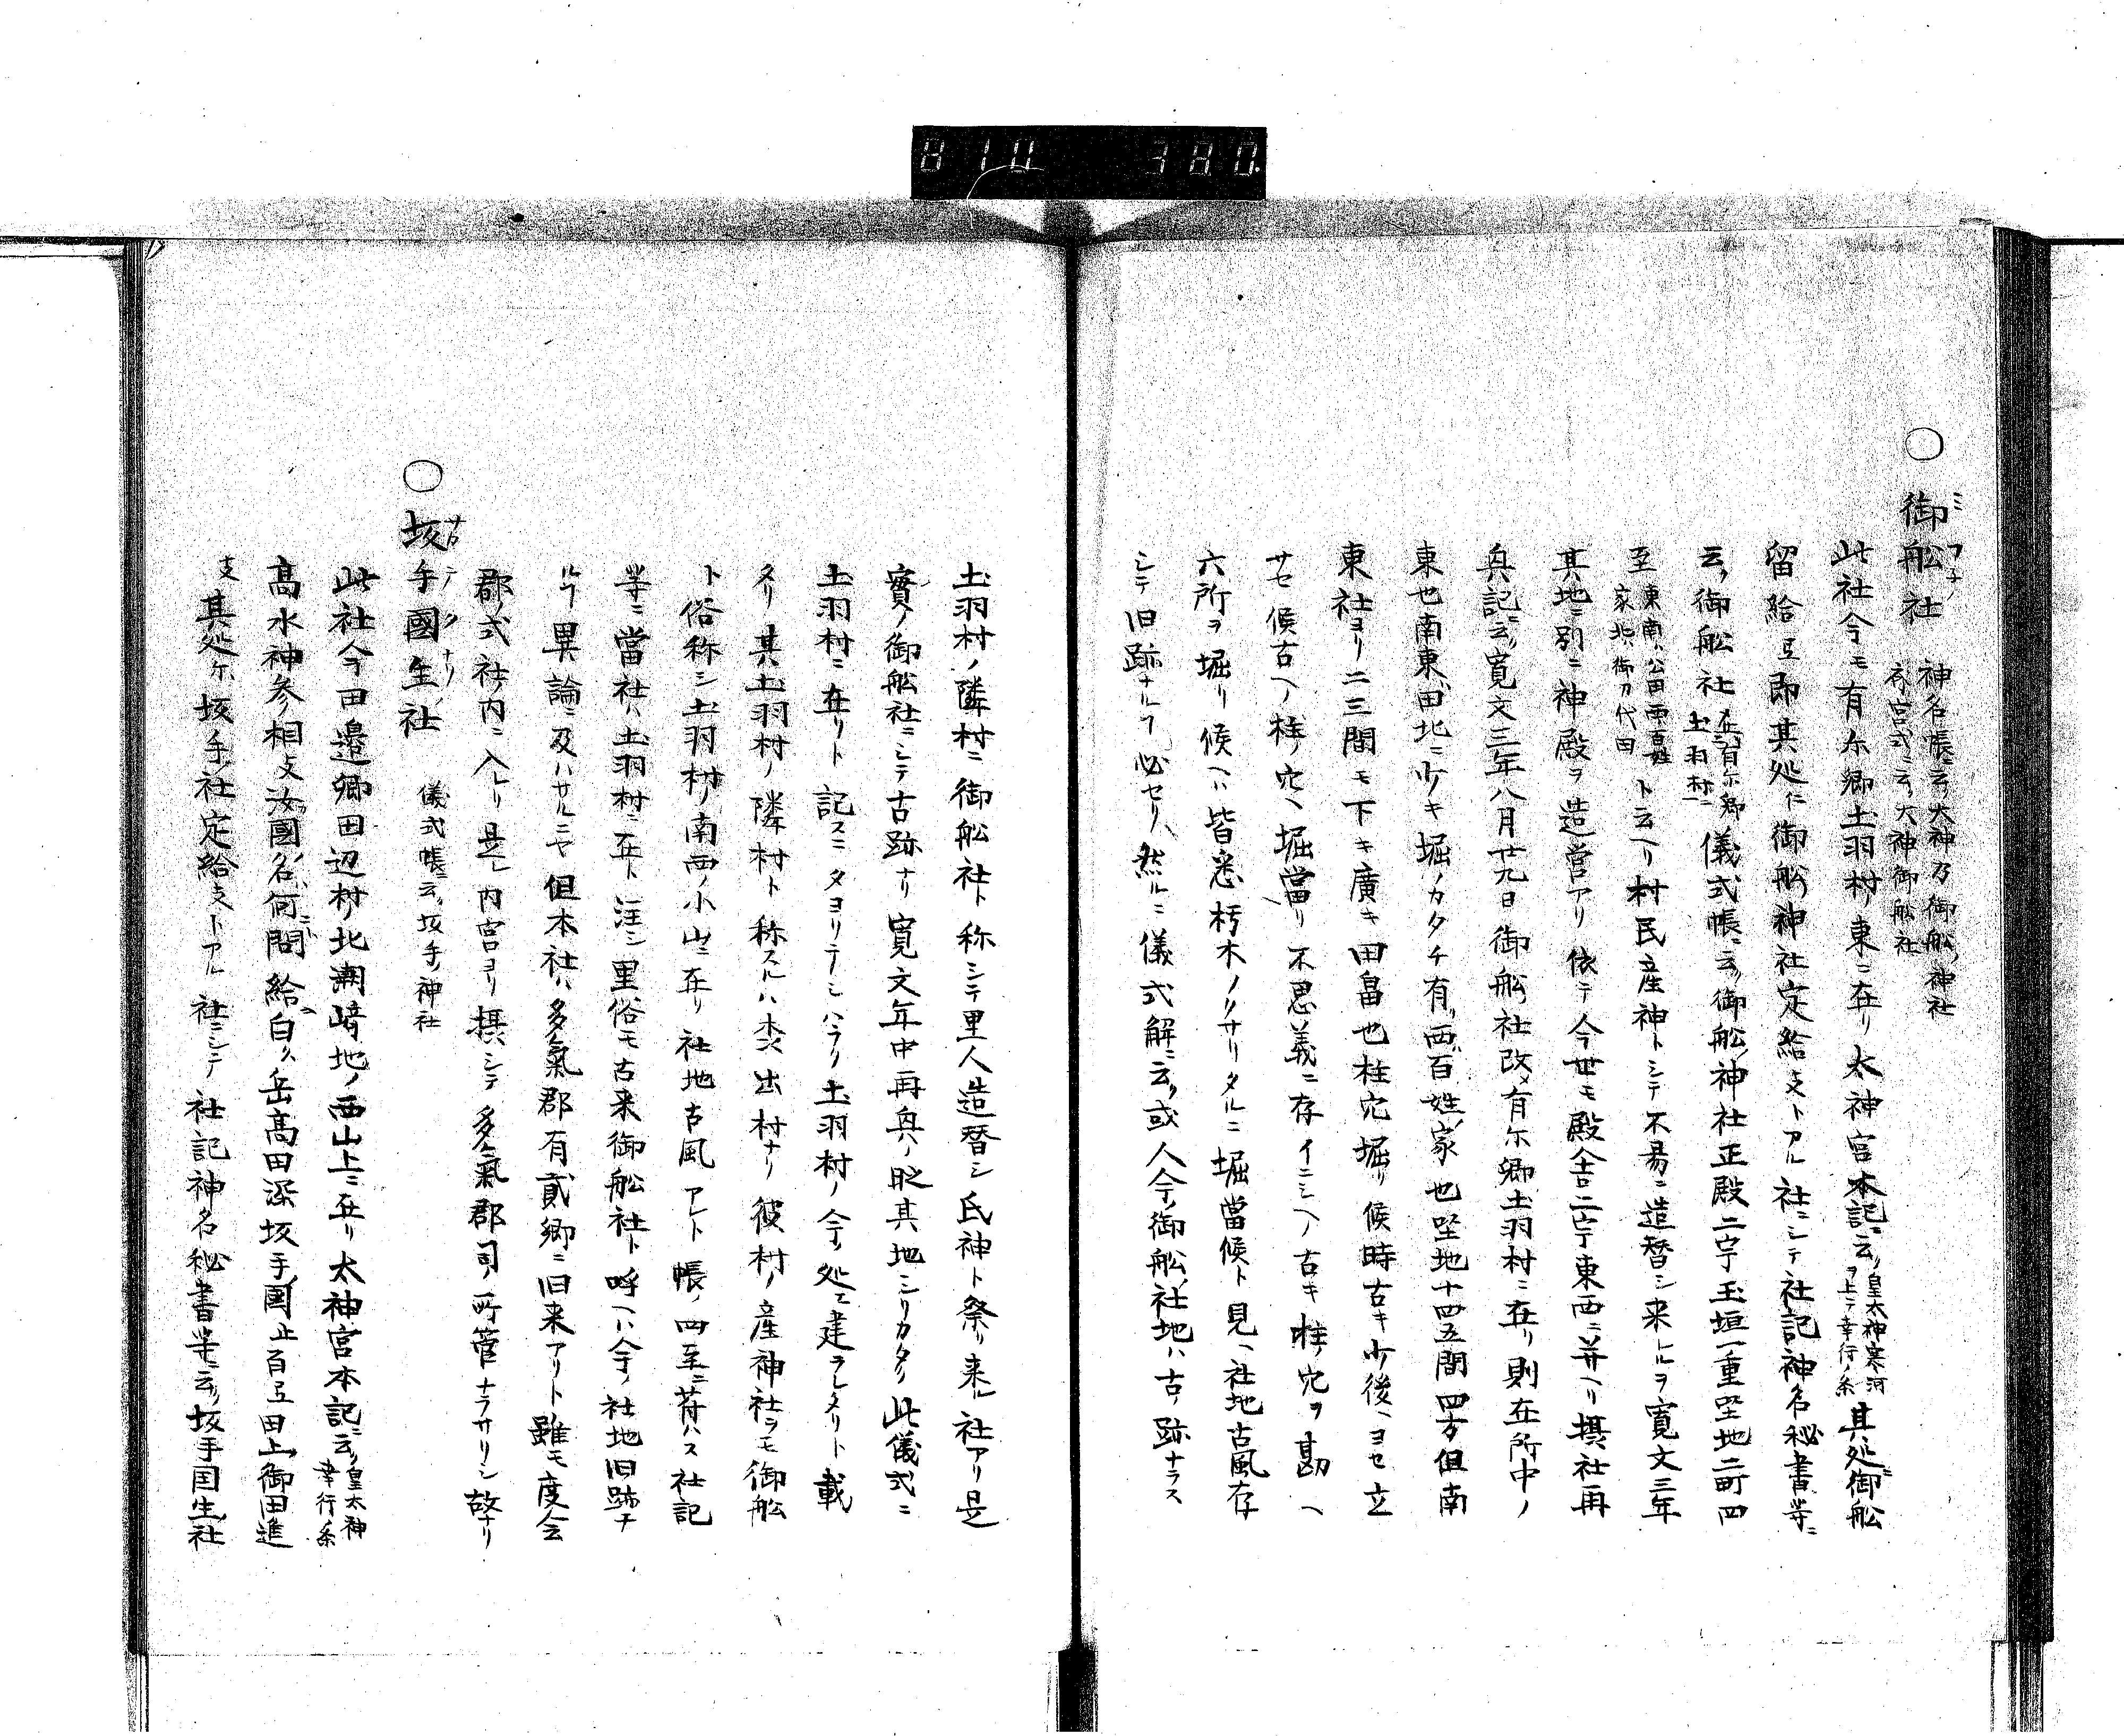 810 380.
○御船社 神名帳ニ云ク大神乃御船ノ神社
斎宮式ニ云ク大神御船社
ミフナノ
此社今モ有尓郷土羽村ノ東ニ在リ太神宮本記ニ云ク皇太神寒河ヲ上テ幸行ノ条其処御船
留給弖即其処仁御船神社定給支トアル社ニシテ社記神名秘書等ニ
云ク御船社在有尓郷土羽村ニ儀式帳ニ云ク御船神社正殿二宇玉垣一重坐地二町四
至東南ハ公田西百姓家北ハ御刀代田ト云ヘリ村民産神トシテ不易ニ造替シ来ルヲ寛文三年
其地ニ別ニ神殿ヲ造営アリ依テ今世モ殿舎二宇東西ニ并ヘリ摂社再
興記ニ云ク寛文三年八月廿九日御船社改メ有尓郷土羽村ニ在リ則在所中ノ
東也南東田北ニ少キ堀ノカタチ有西百姓家也坐地十四五間四方但南
東社ヨリ二三間モ下キ廣キ田畠也柱穴堀リ候時古キ少後ヘヨセ立
サセ候古ヘノ柱ノ穴ヘ堀當リ不思義ニ存イニシヘノ古キ柱ノ穴ヲ勘ヘ
六所ヲ堀リ候ヘハ皆悉朽木ノクサリタルニ堀當候ト見ヘ社地古風存
シテ旧跡ナルフ必セリ然ルニ儀式解ニ云ク或人今ノ御船社地ハ古跡ナラス
土羽村ノ隣村ニ御船社ト称シテ里人造替シ氏神ト祭リ来ル社アリ是
實ノ御船社ニシテ古跡ナリ寛文年中再興ノ時其地シリカタク此儀式ニ
土羽村ニ在リト記スニタヨリテシハラク土羽村ノ今ノ処ニ建ラレタリト載
タリ其土羽村ノ隣村ト称スルハ本ト出村ナリ彼村ノ産神社ヲモ御船
ト俗称シ土羽村ノ南西ノ小山ニ在リ社地古風アレト帳ノ四至ニ符ハス社記
等ニ當社ハ土羽村ニ在ト注シ里俗モ古来御船社ト呼ヘハ今ノ社地旧跡ナ
ルフ異論ニ及ハサルニヤ但本社ハ多氣郡有貳郷ニ旧来アリト雖モ度会
郡ノ式社ノ内ニ入レリ是レ内宮ヨリ摂シテ多氣郡司ノ所管ナラサリシ故ナリ
○坂手國生社 儀式帳ニ云ク坂手神社
サカテクナリ
此社今ヲ田邊郷田辺村ノ北潮﨑地ノ西山上ニ在リ太神宮本記ニ云ク皇太神幸行ノ条
髙水神参相支汝國名何問給白ク岳髙田深坂手國止百弖田上御田進
支其処尓坂手社定給支トアル社ニシテ社記神名秘書等ニ云ク坂手国生社